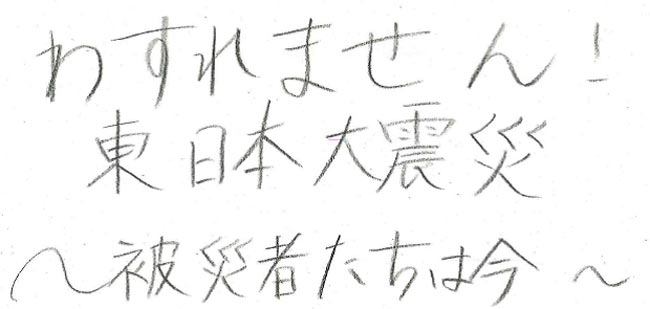 わすれません!
東日本大震災
〜被災者たちは今〜